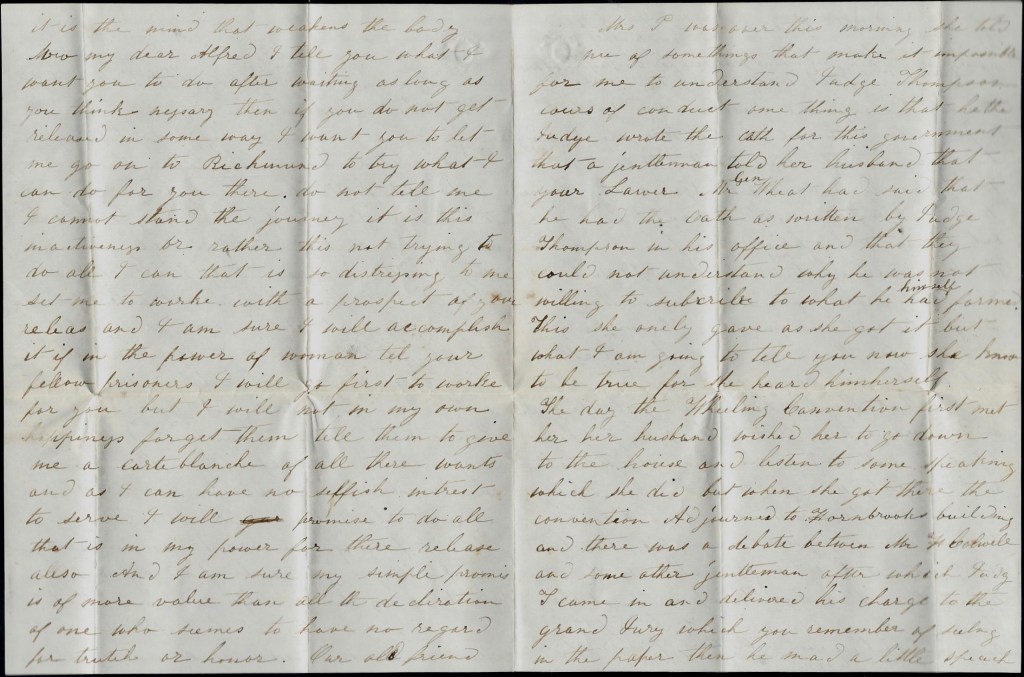 it is the mind that weakens the body
Now my dear Alfred I tell you what I
want you to do after waiting as long as
you think nessary then if you do not get
released in some way I want you to let
me go on to Richmund to try what I
can do for you there. do not tell me
I cannot stand the journey it is this
inactiveness or rather this not trying to
do all I can that is so distressing to me
set me to worke with a prospect of your
releas and I am sure I will accomplish
it if in the power of woman tel your
fellow prisoners I will go first to worke
for you but I will not in my own
happiness forget them tell them to give
me a carteblanche of all there wants
and as I can have no selfish intrest
to serve I will promise to do all
that is in my power for there release
aleso And I am sure my simple promis
is of more value than all th decliration
of one who seemes to have no regard
for truth or honor. Our old friend
Mrs P was over this morning she told
me of somethings that make it impossible
for me to understand Judge Thompson
cours of conduct one thing is that hathe
Judge wrote the oath for this government
that a jentleman told her husband that
your Lawer Mr Gen Wheat had said that
he had the oath as written by Judge
Thompson in his office and that they
could not understand why he was not
willing to subscribe to what he had himself formed
This she onely gave as she got it but
what I am going to tell you now she know
to be true for she heard himherself.
The day the Wheeling Convention first met
her her husband wished her to go down
to the house and listen to some speaking
which she did but when she got there the
convention Adjourned to Hornbrooks building
and there was a debate betwen Mr
and some other jentleman after which Judg
T came in and delivered his charge to the
grand Jury which you remember of seeing
in the paper then he mad a little speach